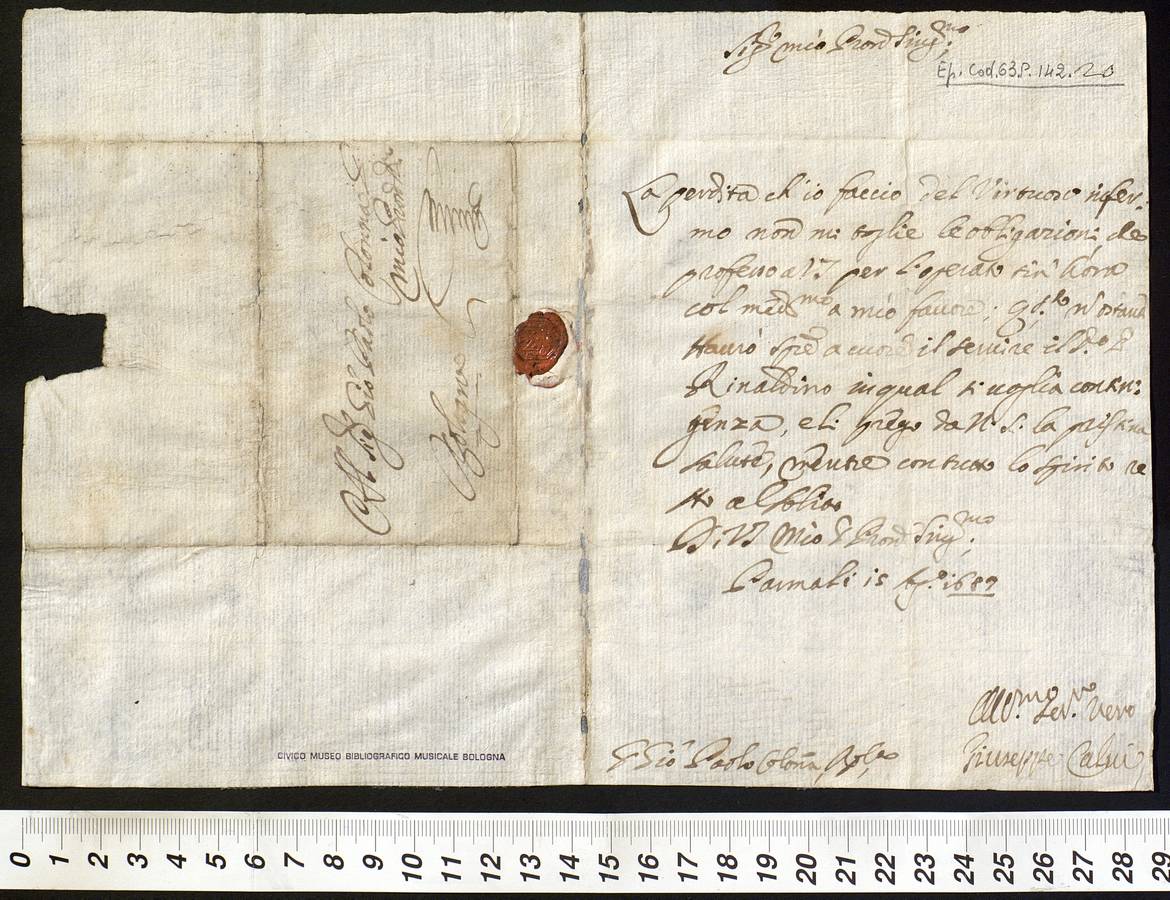 Sig.r mio Pron Sing.mo
Ep. Cod. 63. P. 142. 20
La perdita ch'io faccio del Virtuoso infer-
mo non mi toglie le obligazioni, che
professo a V.S. per l'operato sin' hora
col med.mo a mio favore;
a cuore il servire il S.r D.
Rinaldino in qual si voglia contin-
genza, e li prego da N. S. la pristina
salute, mentre con tutto lo spirito re
sto al solito
Di V.S. Mio S. Pron Sing.mo
Parma li 15 1689
Aff.mo Ser.re Vero
Giuseppe Calvi
S. Gio Paolo Colonna, Bol.a
Al Sig.r Gio Paolo Colonna
mio Pron
Bologna
CIVICO MUSEO BIBLIOGRAFICO MUSICALE BOLOGNA
0 1 2 3 4 5 6 7 8 9 10 11 12 13 14 15 16 17 18 19 20 21 22 23 24 25 26 27 28 29